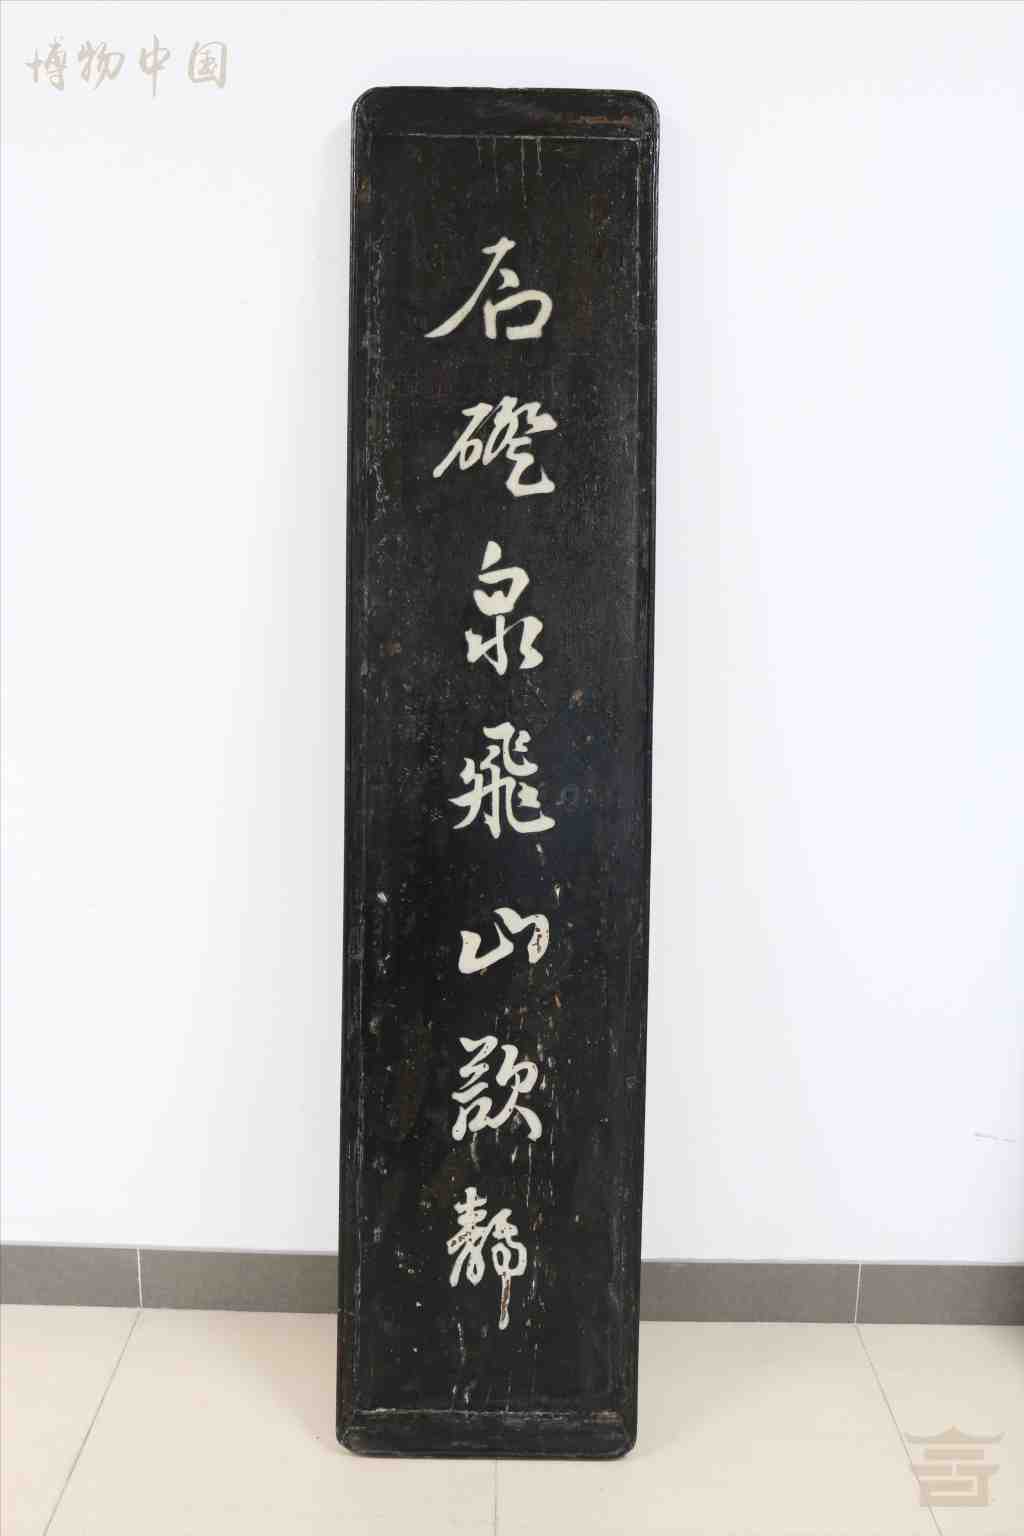 博物中国
石磴泉飛山欲靜